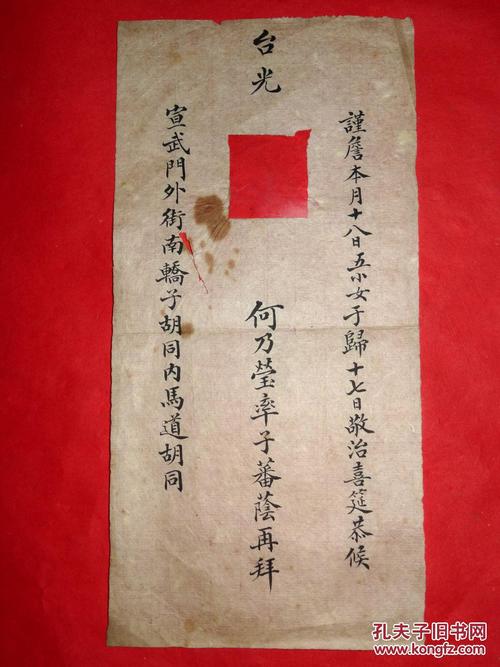 謹詹本月十八日五小女于歸十七日敬治喜筵恭候
台光
何乃瑩率子蕃蔭再拜
宣武門外街南轎子胡同內馬道胡同
孔夫子旧书网
www.kongfz.com